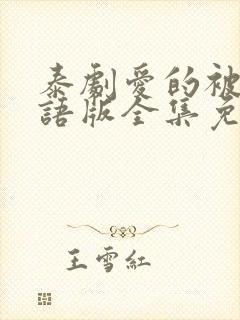 泰劇愛的被
語版全集免
王雪紅